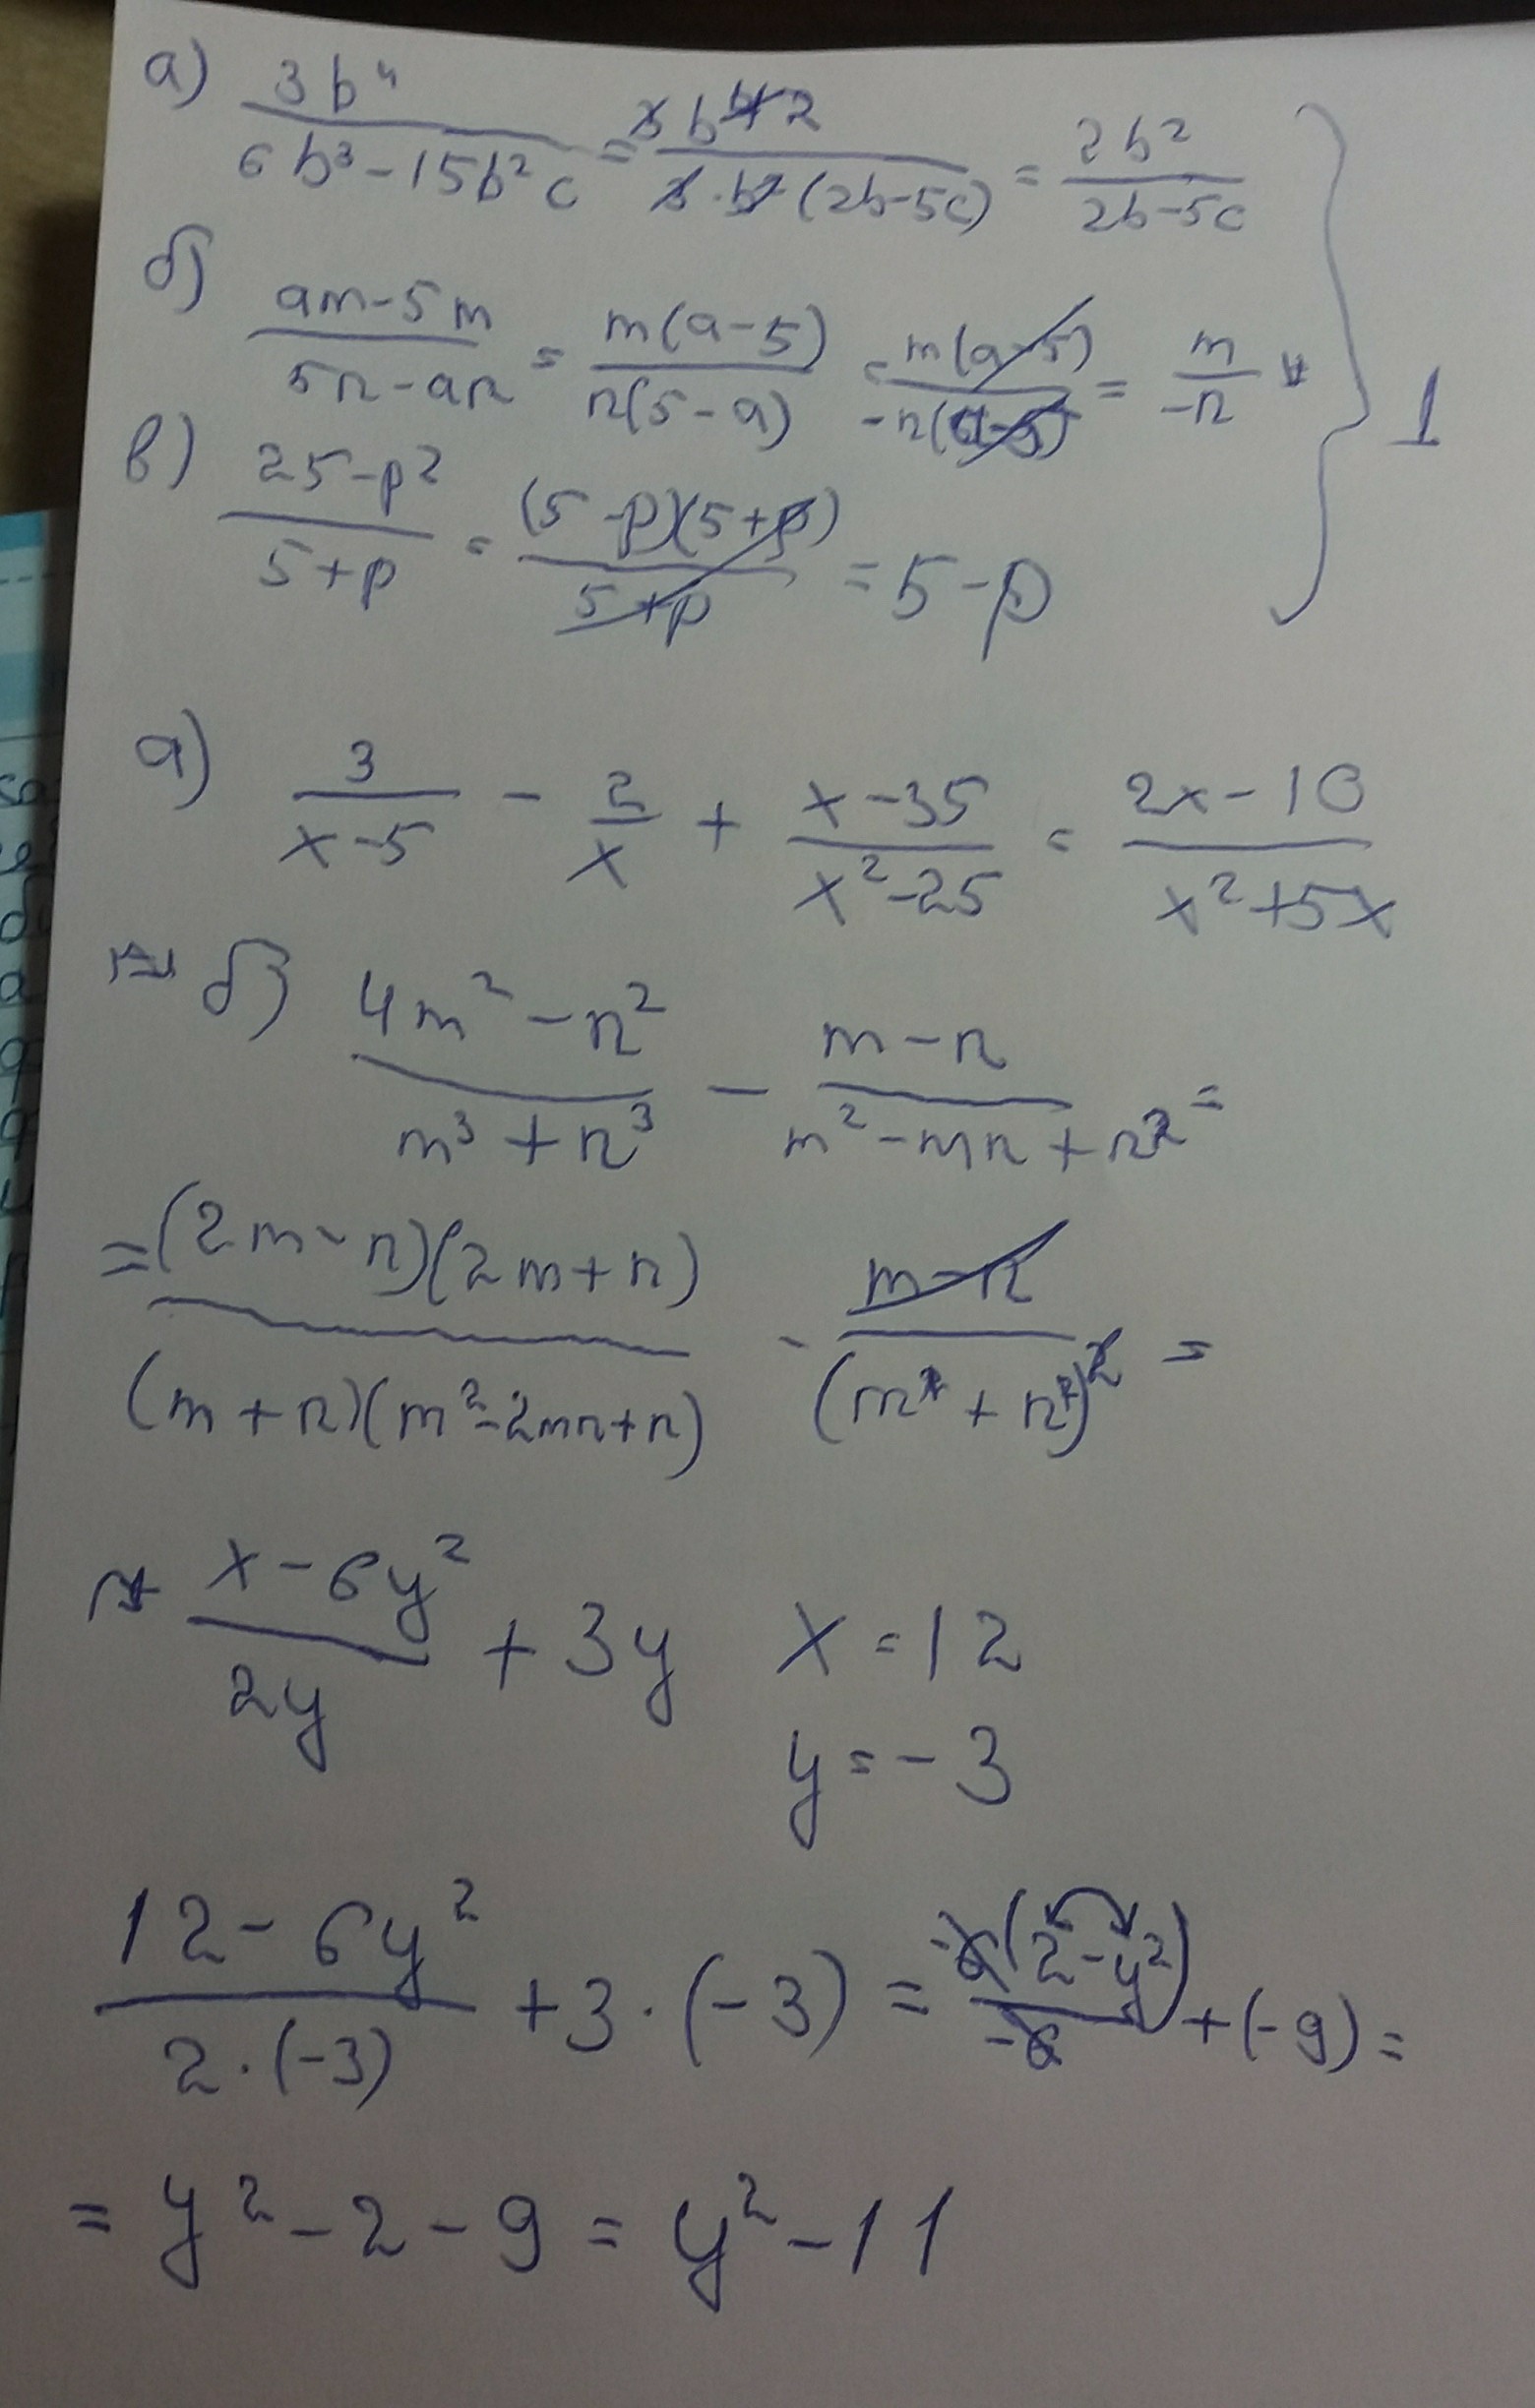 а) 3b⁴ / (6b³-15b²c) = 3b⁴ 2 / (3·b²(2b-5c)) = 2b² / (2b-5c)
б) (am-5m) / (5n-an) = m(a-5) / (n(5-a)) = m(a-5) / (-n(a-5)) = m / -n
} 1
в) (25-p²) / (5+p) = (5-p)(5+p) / (5+p) = 5-p
а) 3 / (x-5) - 2 / x + (x-35) / (x²-25) = (2x-10) / (x²+5x)
б) (4m²-n²) / (m³+n³) - (m-n) / (m²-mn+n²) =
= (2m-n)(2m+n) / ((m+n)(m²-2mn+n)) - (m-n) / (m²+n²)² =
(x-6y²) / 2y + 3y x=12
y=-3
(12-6y²) / (2·(-3)) + 3·(-3) = -6(2-y²) / -6 + (-9) =
= y²-2-9 = y²-11